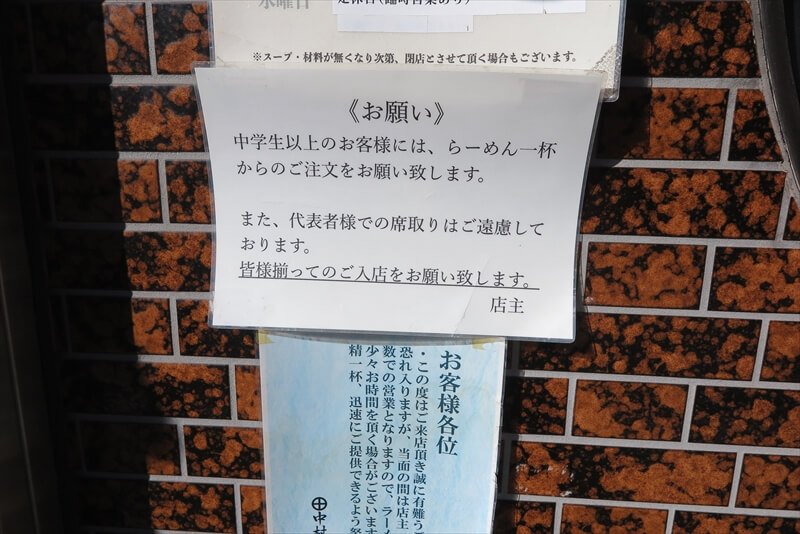 水曜日
定休日(臨時営業あり)
※スープ・材料が無くなり次第、閉店とさせて頂く場合もございます。
《お願い》
中学生以上のお客様には、らーめん一杯
からのご注文をお願い致します。
また、代表者様での席取りはご遠慮して
おります。
皆様揃ってのご入店をお願い致します。
店主
お客様各位
・この度はご来店頂き誠に有難う
恐れ入りますが、当面の間は店主
数での営業となりますので、ラー
少々お時間を頂く場合がございます
精一杯、迅速にご提供できるよう
中村